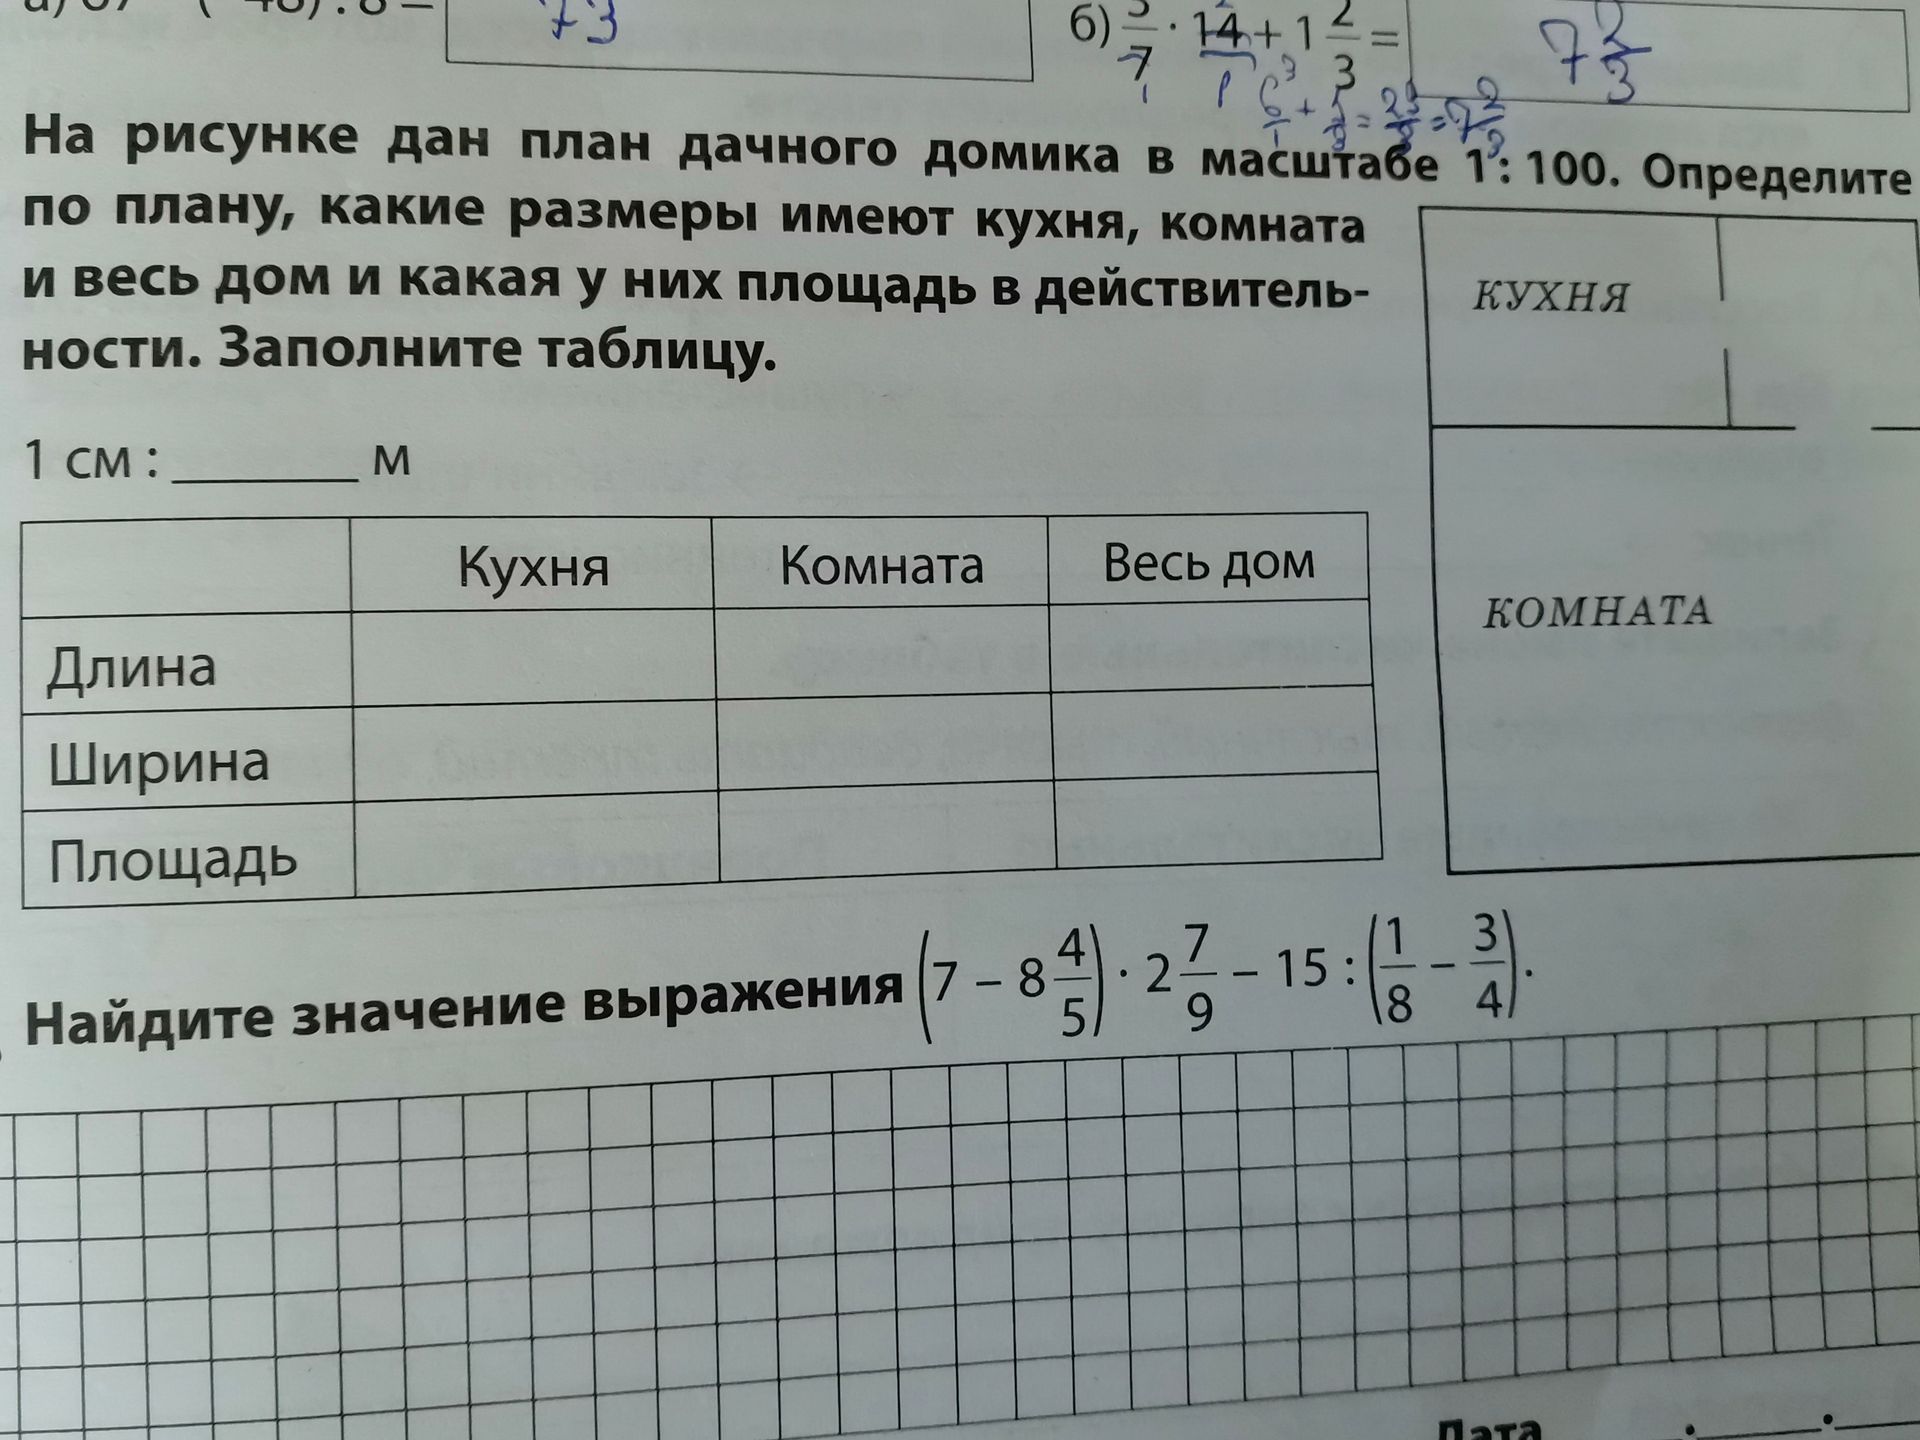 73
б) 3/7 · 14 + 1 2/3 = 7 2/3
6/1 + 5/3 = 23/3 = 7 2/3
На рисунке дан план дачного домика в масштабе 1 : 100. Определите
по плану, какие размеры имеют кухня, комната
и весь дом и какая у них площадь в действитель-
ности. Заполните таблицу.
КУХНЯ
КОМНАТА
1 см : _______ м
Кухня Комната Весь дом
Длина
Ширина
Площадь
Найдите значение выражения (7 – 8 4/5) · 2 7/9 – 15 : (1/8 – 3/4).
Дата